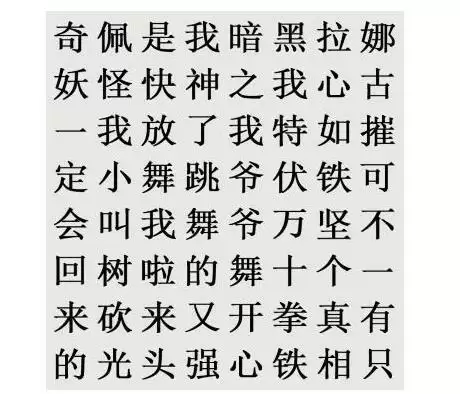 奇佩是我暗黑拉娜
妖怪快神之我心古
一我放了我特如摧
定小舞跳爷伏铁可
会叫我舞爷万坚不
回树啦的舞十个一
来砍来又开拳真有
的光头强心铁相只